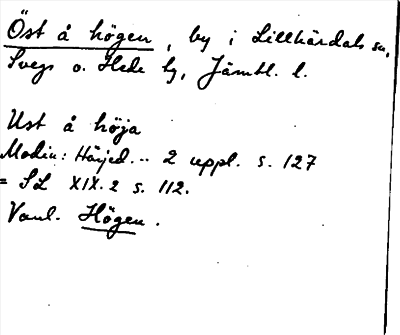 Öst å högen, by i Lillhärdals sn,
Svegs o. Hede tg, Jämtl. l.
Ust å höja
Modin: Härjed... 2 uppl. s. 127
= SL XIX. 2 s. 112.
Vanl. Högen.